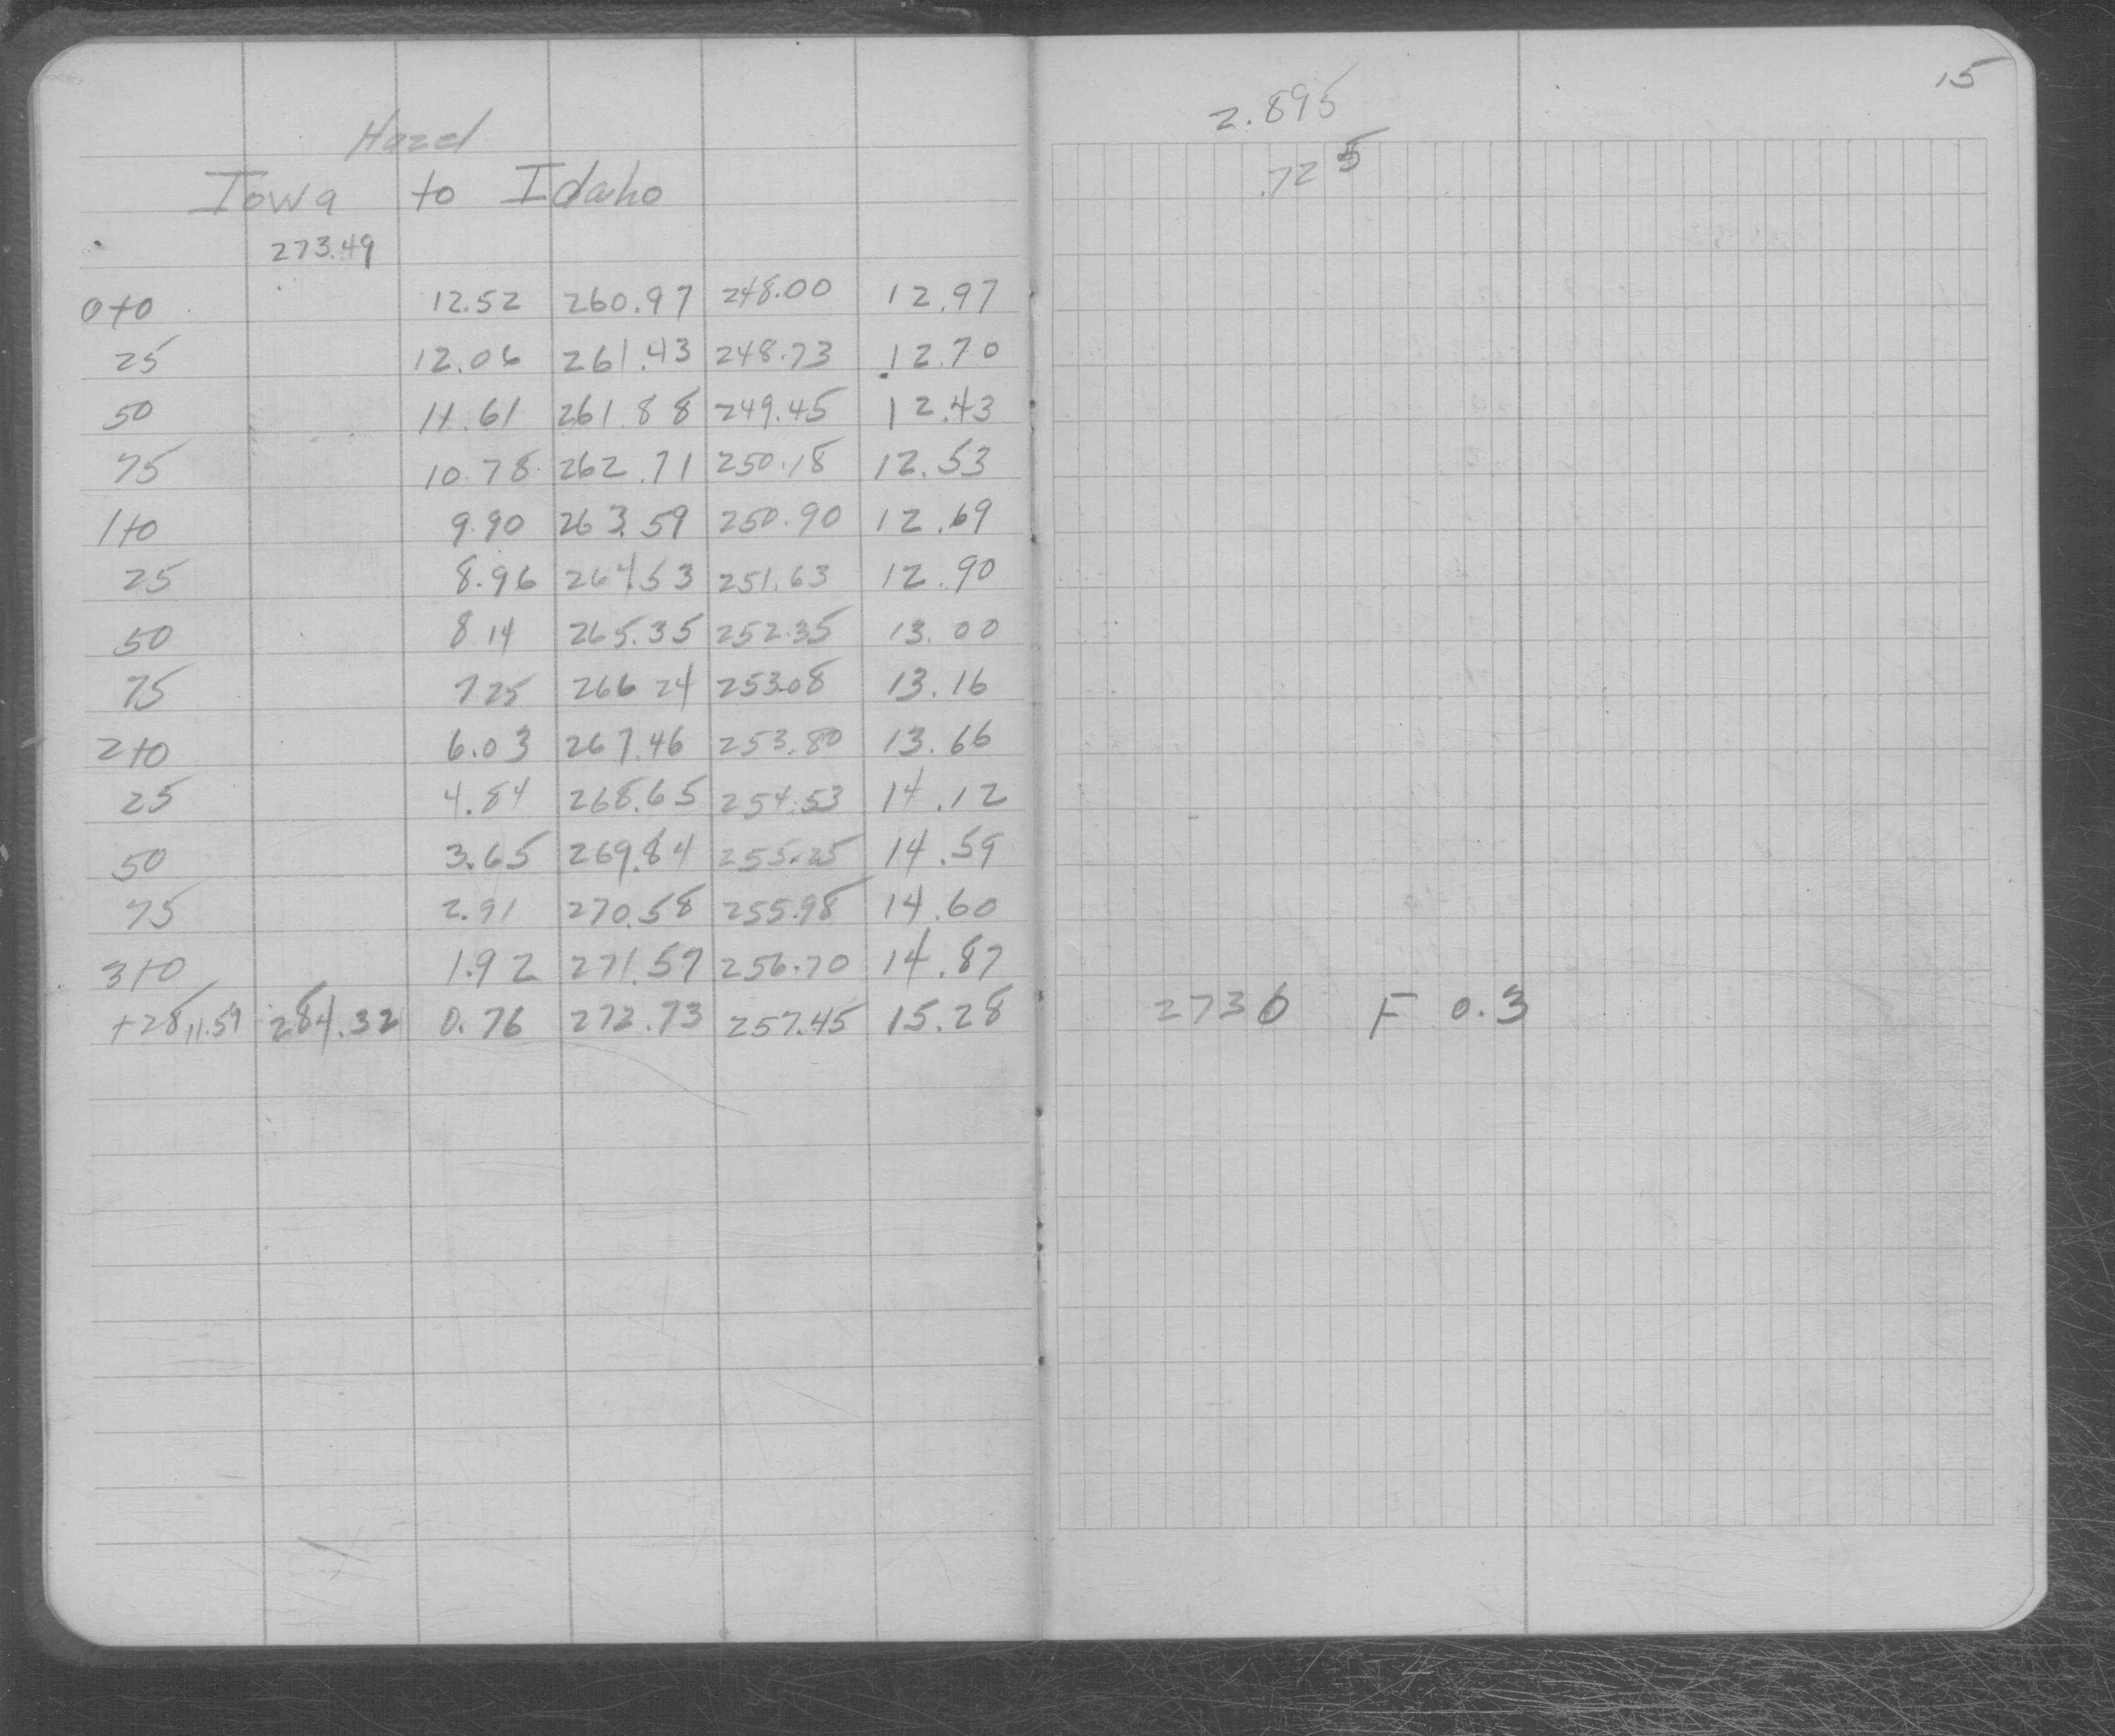 Hazel
Iowa to Idaho
273.49
0+0 12.52 260.97 248.00 12.97
25 12.06 261.43 248.73 12.70
50 11.61 261.88 249.45 12.43
75 10.78 262.71 250.18 12.53
1+0 9.90 263.59 250.90 12.69
25 8.96 264.53 251.63 12.90
50 8.14 265.35 252.35 13.00
75 7 25 266 24 253.08 13.16
2+0 6.03 267.46 253.80 13.66
25 4.84 268.65 254.53 14.12
50 3.65 269.84 255.25 14.59
75 2.91 270.58 255.98 14.60
3+0 1.92 271.57 256.70 14.87
+28 11.59 284.32 0.76 272.73 257.45 15.28
15
2.895
.725
2736 F 0.3